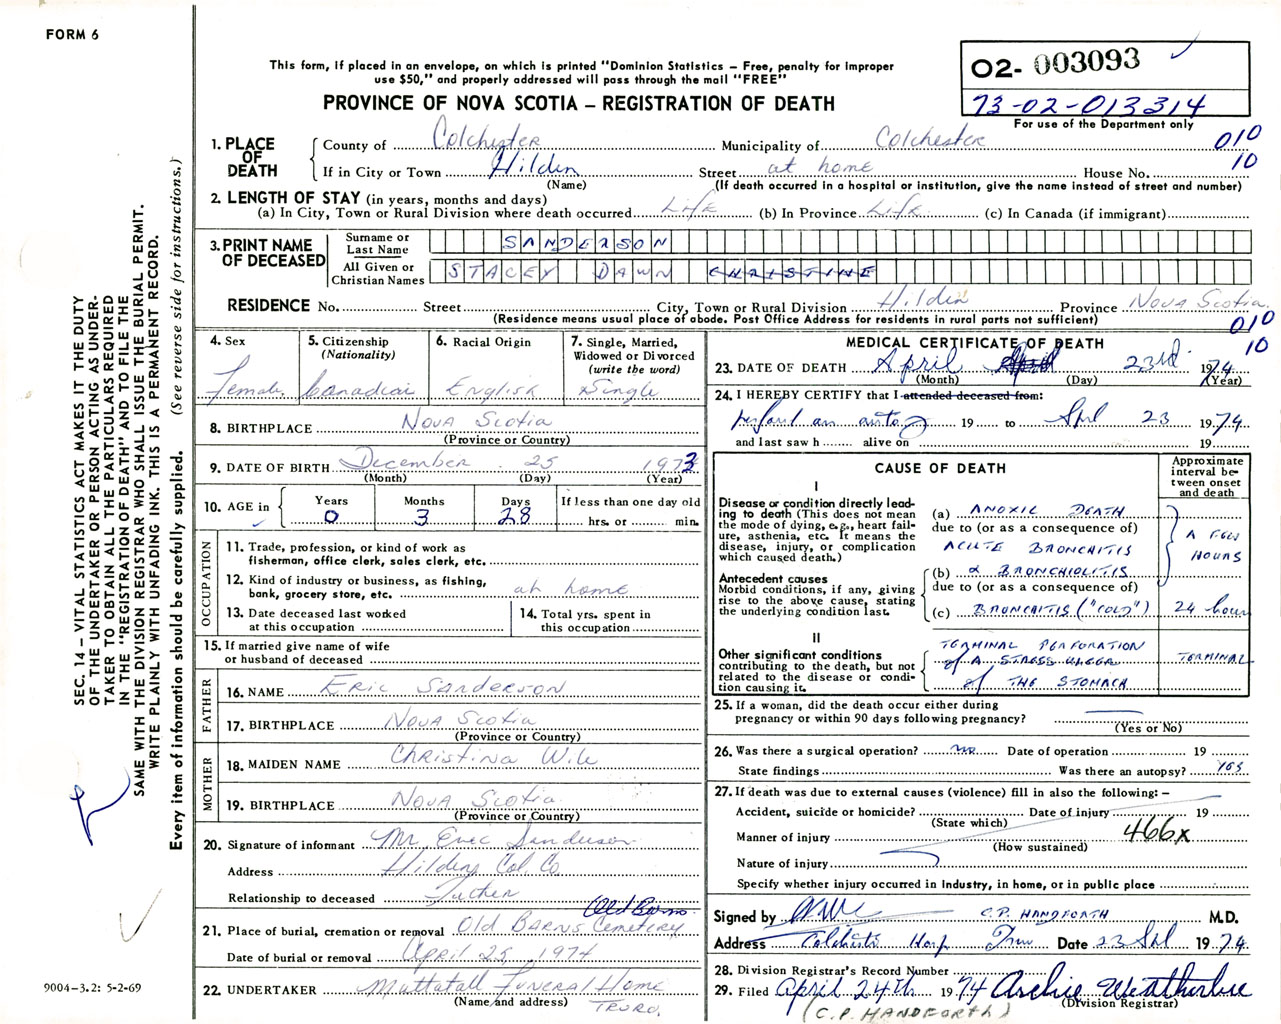 FORM 6
This form, if placed in an envelope, on which is printed "Dominion Statistics – Free, penalty for improper
use $50," and properly addressed will pass through the mail "FREE"
PROVINCE OF NOVA SCOTIA – REGISTRATION OF DEATH
O2- 003093
73-02-013314
For use of the Department only
1. PLACE OF DEATH
County of Colchester Municipality of Colchester 010
If in City or Town Hilden Street at home House No. 10
(Name) (If death occurred in a hospital or institution, give the name instead of street and number)
2. LENGTH OF STAY (in years, months and days)
(a) In City, Town or Rural Division where death occurred Life (b) In Province Life (c) In Canada (if immigrant)
3. PRINT NAME OF DECEASED
Surname or Last Name SANDERSON
All Given or Christian Names STACEY DAWN CHRISTINE
RESIDENCE No. Street City, Town or Rural Division Hilden Province Nova Scotia
(Residence means usual place of abode. Post Office Address for residents in rural parts not sufficient)
010
10
4. Sex
Female
5. Citizenship
(Nationality)
Canadian
6. Racial Origin
English
7. Single, Married,
Widowed or Divorced
(write the word)
Single
8. BIRTHPLACE Nova Scotia
(Province or Country)
9. DATE OF BIRTH December 25 1973
(Month) (Day) (Year)
10. AGE in
Years Months Days If less than one day old
0 3 28 hrs. or min.
OCCUPATION
11. Trade, profession, or kind of work as
fisherman, office clerk, sales clerk, etc.
12. Kind of industry or business, as fishing,
bank, grocery store, etc. at home
13. Date deceased last worked
at this occupation
14. Total yrs. spent in
this occupation
15. If married give name of wife
or husband of deceased
FATHER
16. NAME Eric Sanderson
17. BIRTHPLACE Nova Scotia
(Province or Country)
MOTHER
18. MAIDEN NAME Christina Wile
19. BIRTHPLACE Nova Scotia
(Province or Country)
20. Signature of informant Mr. Eric Sanderson
Address Hilden, Col. Co.
Relationship to deceased Father
Old Barns
21. Place of burial, cremation or removal Old Barns Cemetery
Date of burial or removal April 25, 1974
22. UNDERTAKER Mattatall Funeral Home
(Name and address) TRURO.
MEDICAL CERTIFICATE OF DEATH
23. DATE OF DEATH April April 23rd 1974
(Month) (Day) (Year)
24. I HEREBY CERTIFY that I attended deceased from:
19 to Apl 23 1974
and last saw h alive on 19
CAUSE OF DEATH
Approximate
interval be-
tween onset
and death
I
Disease or condition directly lead-
ing to death (This does not mean
the mode of dying, e.g., heart fail-
ure, asthenia, etc. It means the
disease, injury, or complication
which caused death.)
(a) ANOXIC DEATH
due to (or as a consequence of)
ACUTE BRONCHITIS
A FEW
HOURS
Antecedent causes
Morbid conditions, if any, giving
rise to the above cause, stating
the underlying condition last.
(b) & BRONCHIOLITIS
due to (or as a consequence of)
(c) BRONCHITIS ("COLD") 24 hours
II
Other significant conditions
contributing to the death, but not
related to the disease or condi-
tion causing it.
TERMINAL PERFORATION
of A STRESS ULCER TERMINAL
of THE STOMACH
25. If a woman, did the death occur either during
pregnancy or within 90 days following pregnancy?
(Yes or No)
26. Was there a surgical operation? no Date of operation 19
State findings Was there an autopsy? YES
27. If death was due to external causes (violence) fill in also the following: –
Accident, suicide or homicide? Date of injury 19
(State which)
Manner of injury 466x
(How sustained)
Nature of injury
Specify whether injury occurred in industry, in home, or in public place
Signed by C.P. HANDFORTH M.D.
Address Colchester Hosp Truro Date 23 Apl 1974
28. Division Registrar's Record Number
29. Filed April 24th 1974 Archie Weatherbee
(Division Registrar)
(C.P. HANDFORTH)
SEC. 14 – VITAL STATISTICS ACT MAKES IT THE DUTY
OF THE UNDERTAKER OR PERSON ACTING AS UNDER-
TAKER TO OBTAIN ALL THE PARTICULARS REQUIRED
IN THE "REGISTRATION OF DEATH" AND TO FILE THE
SAME WITH THE DIVISION REGISTRAR WHO SHALL ISSUE THE BURIAL PERMIT.
WRITE PLAINLY WITH UNFADING INK. THIS IS A PERMANENT RECORD.
Every item of information should be carefully supplied. (See reverse side for instructions.)
9004-3.2: 5-2-69